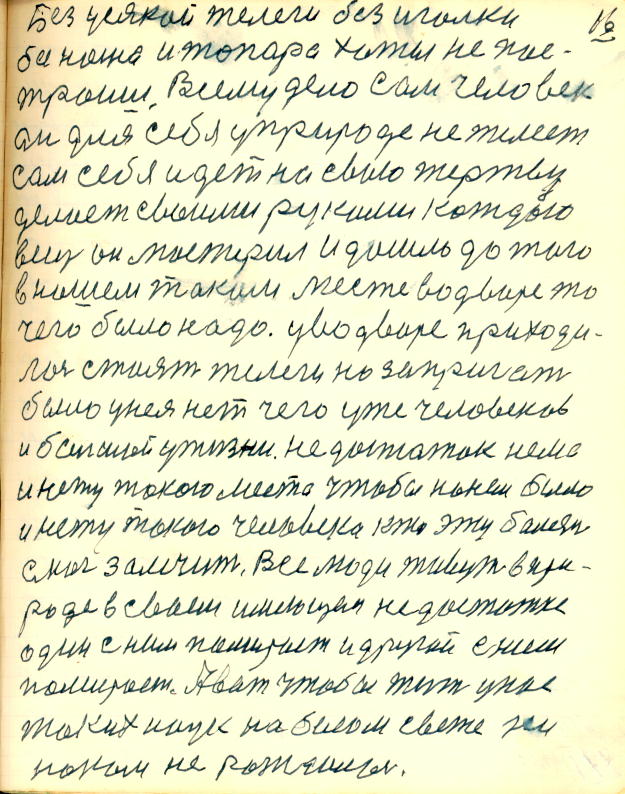 Без усякой телеги без иголки
без ножа и топара хаты не пос-
троиш. Всему дело сам человек
ан для себя уприроде не жалеет
сам себя идет на свою жертву
делает своими руками каждого
вещ он мастерил и дошло до того
в нашем таком месте водваре то
чего было надо. уводваре приходи-
лся стаят телеги но запригат
было унея нет чего уже человеков
и большой ужизни. недостаток нема
и нету такого места чтобы наней было
и нету такого человека кто эту балезн
смог залечит. Все люди живут впри-
роде в своем имеющем недостатке
один с ним памирает и другой с ним
помирает. А вот чтобы тит унас
таких наук на белом свете ни
наком не раждалас.